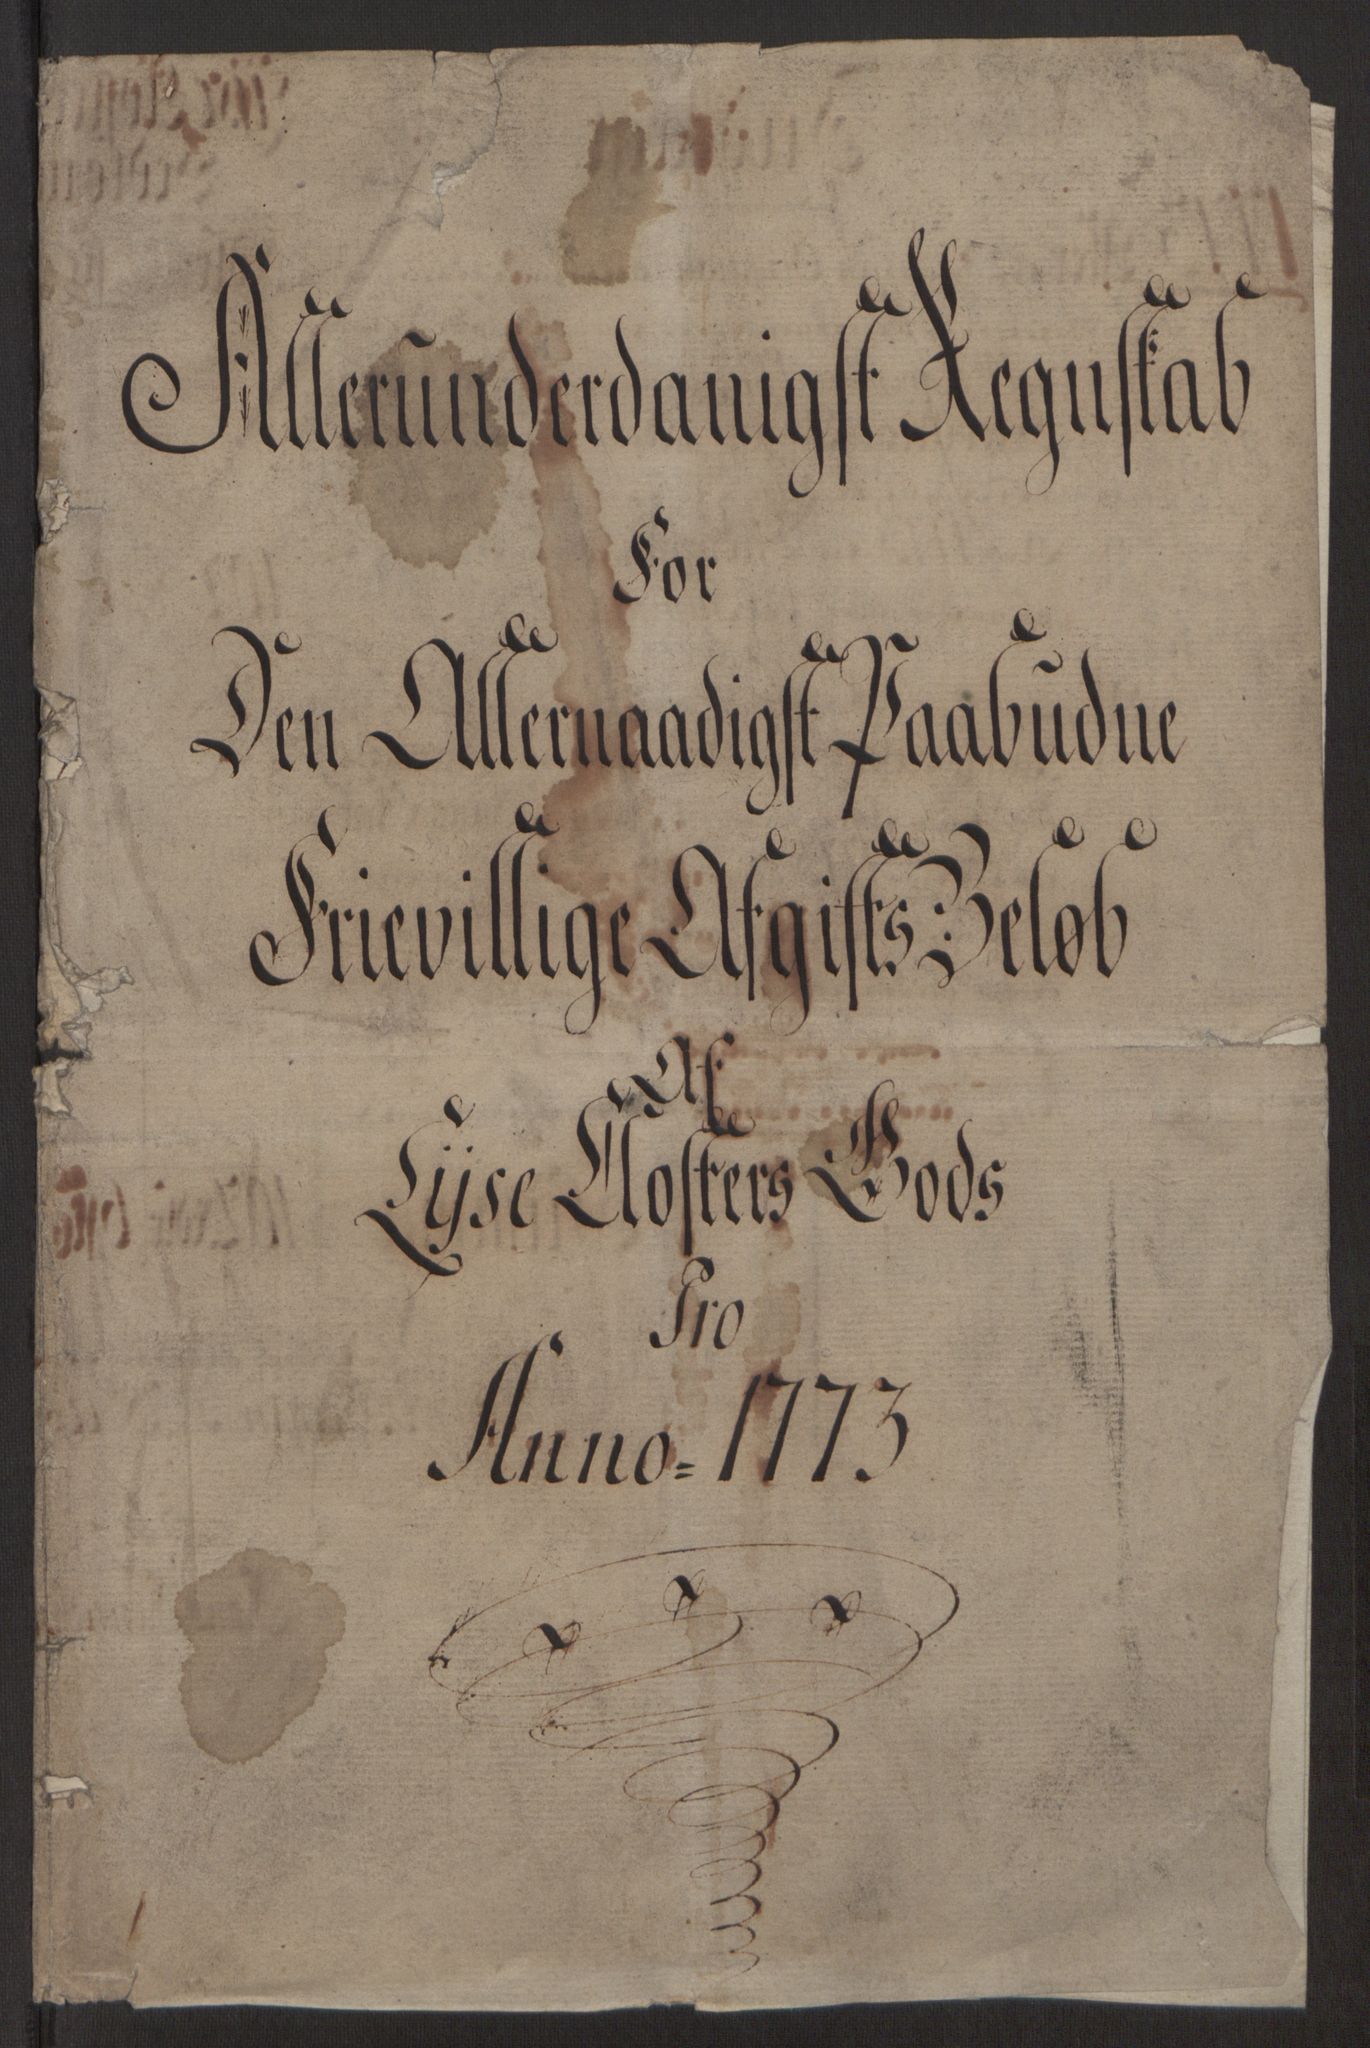 Allerunderdanigst Regnskab
For
Den Allernaadigst Paabudne
Frievillige Afgifts Beløb
Af
Lÿse Closters Gods
Pro
Anno = 1773